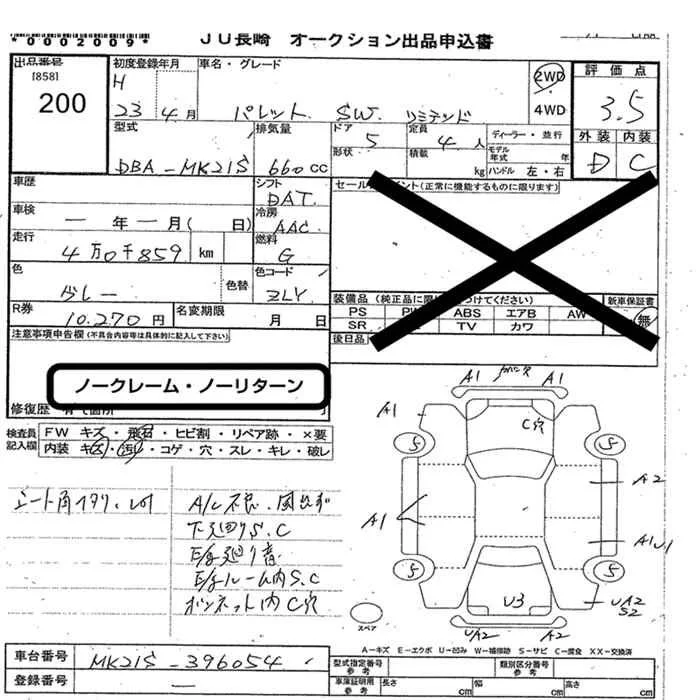 *0002009*
JU長崎 オークション出品申込書
出品番号 初度登録年月 車名・グレード 2WD 評価点
[858] H 4WD 3.5
200 23 年 4 月 パレット SW リミテッド
型式 排気量 ドア 5 定員 4 人 ディーラー・並行 外装 内装
DBA-MK21S 660 CC 形状 積載 kg モデル年式 年 D C
ハンドル 左・右
車歴 シフト DAT セールスポイント(正常に機能するものに限ります)
車検 ー 年 ー 月( 日) 冷房 AAC
走行 4万0千859 km 燃料 G
色 グレー 色替 色コード ZLY
装備品(純正品に限り つけてください) 新車保証書
R券 10.270円 名変期限 月 日 PS ABS エアB AW 無
SR TV カワ
注意事項申告欄(不具合内容等は具体的に記入して下さい) 後日品
ノークレーム・ノーリターン
修復歴
検査員記入欄 FW キズ・飛石・ヒビ割・リペア跡・×要
内装 キズ・汚れ・コゲ・穴・スレ・キレ・破レ
A/C不良
下廻りS.C
E/g廻り音
E/gルーム内S.C
ボンネット内C穴
A1 A1
A1 C穴
5 5
A2
A1
A1U1
5 5
U3 UA2
S2
UA2 A2
スペア
A-キズ E-エクボ U-凹み W-補修跡 S-サビ C-腐食 XX-交換済
車台番号 MK21S-396054 型式指定番号 参考 類別区分番号 参考
登録番号 ー 車庫証明用 参考 長さ cm 幅 cm 高さ cm